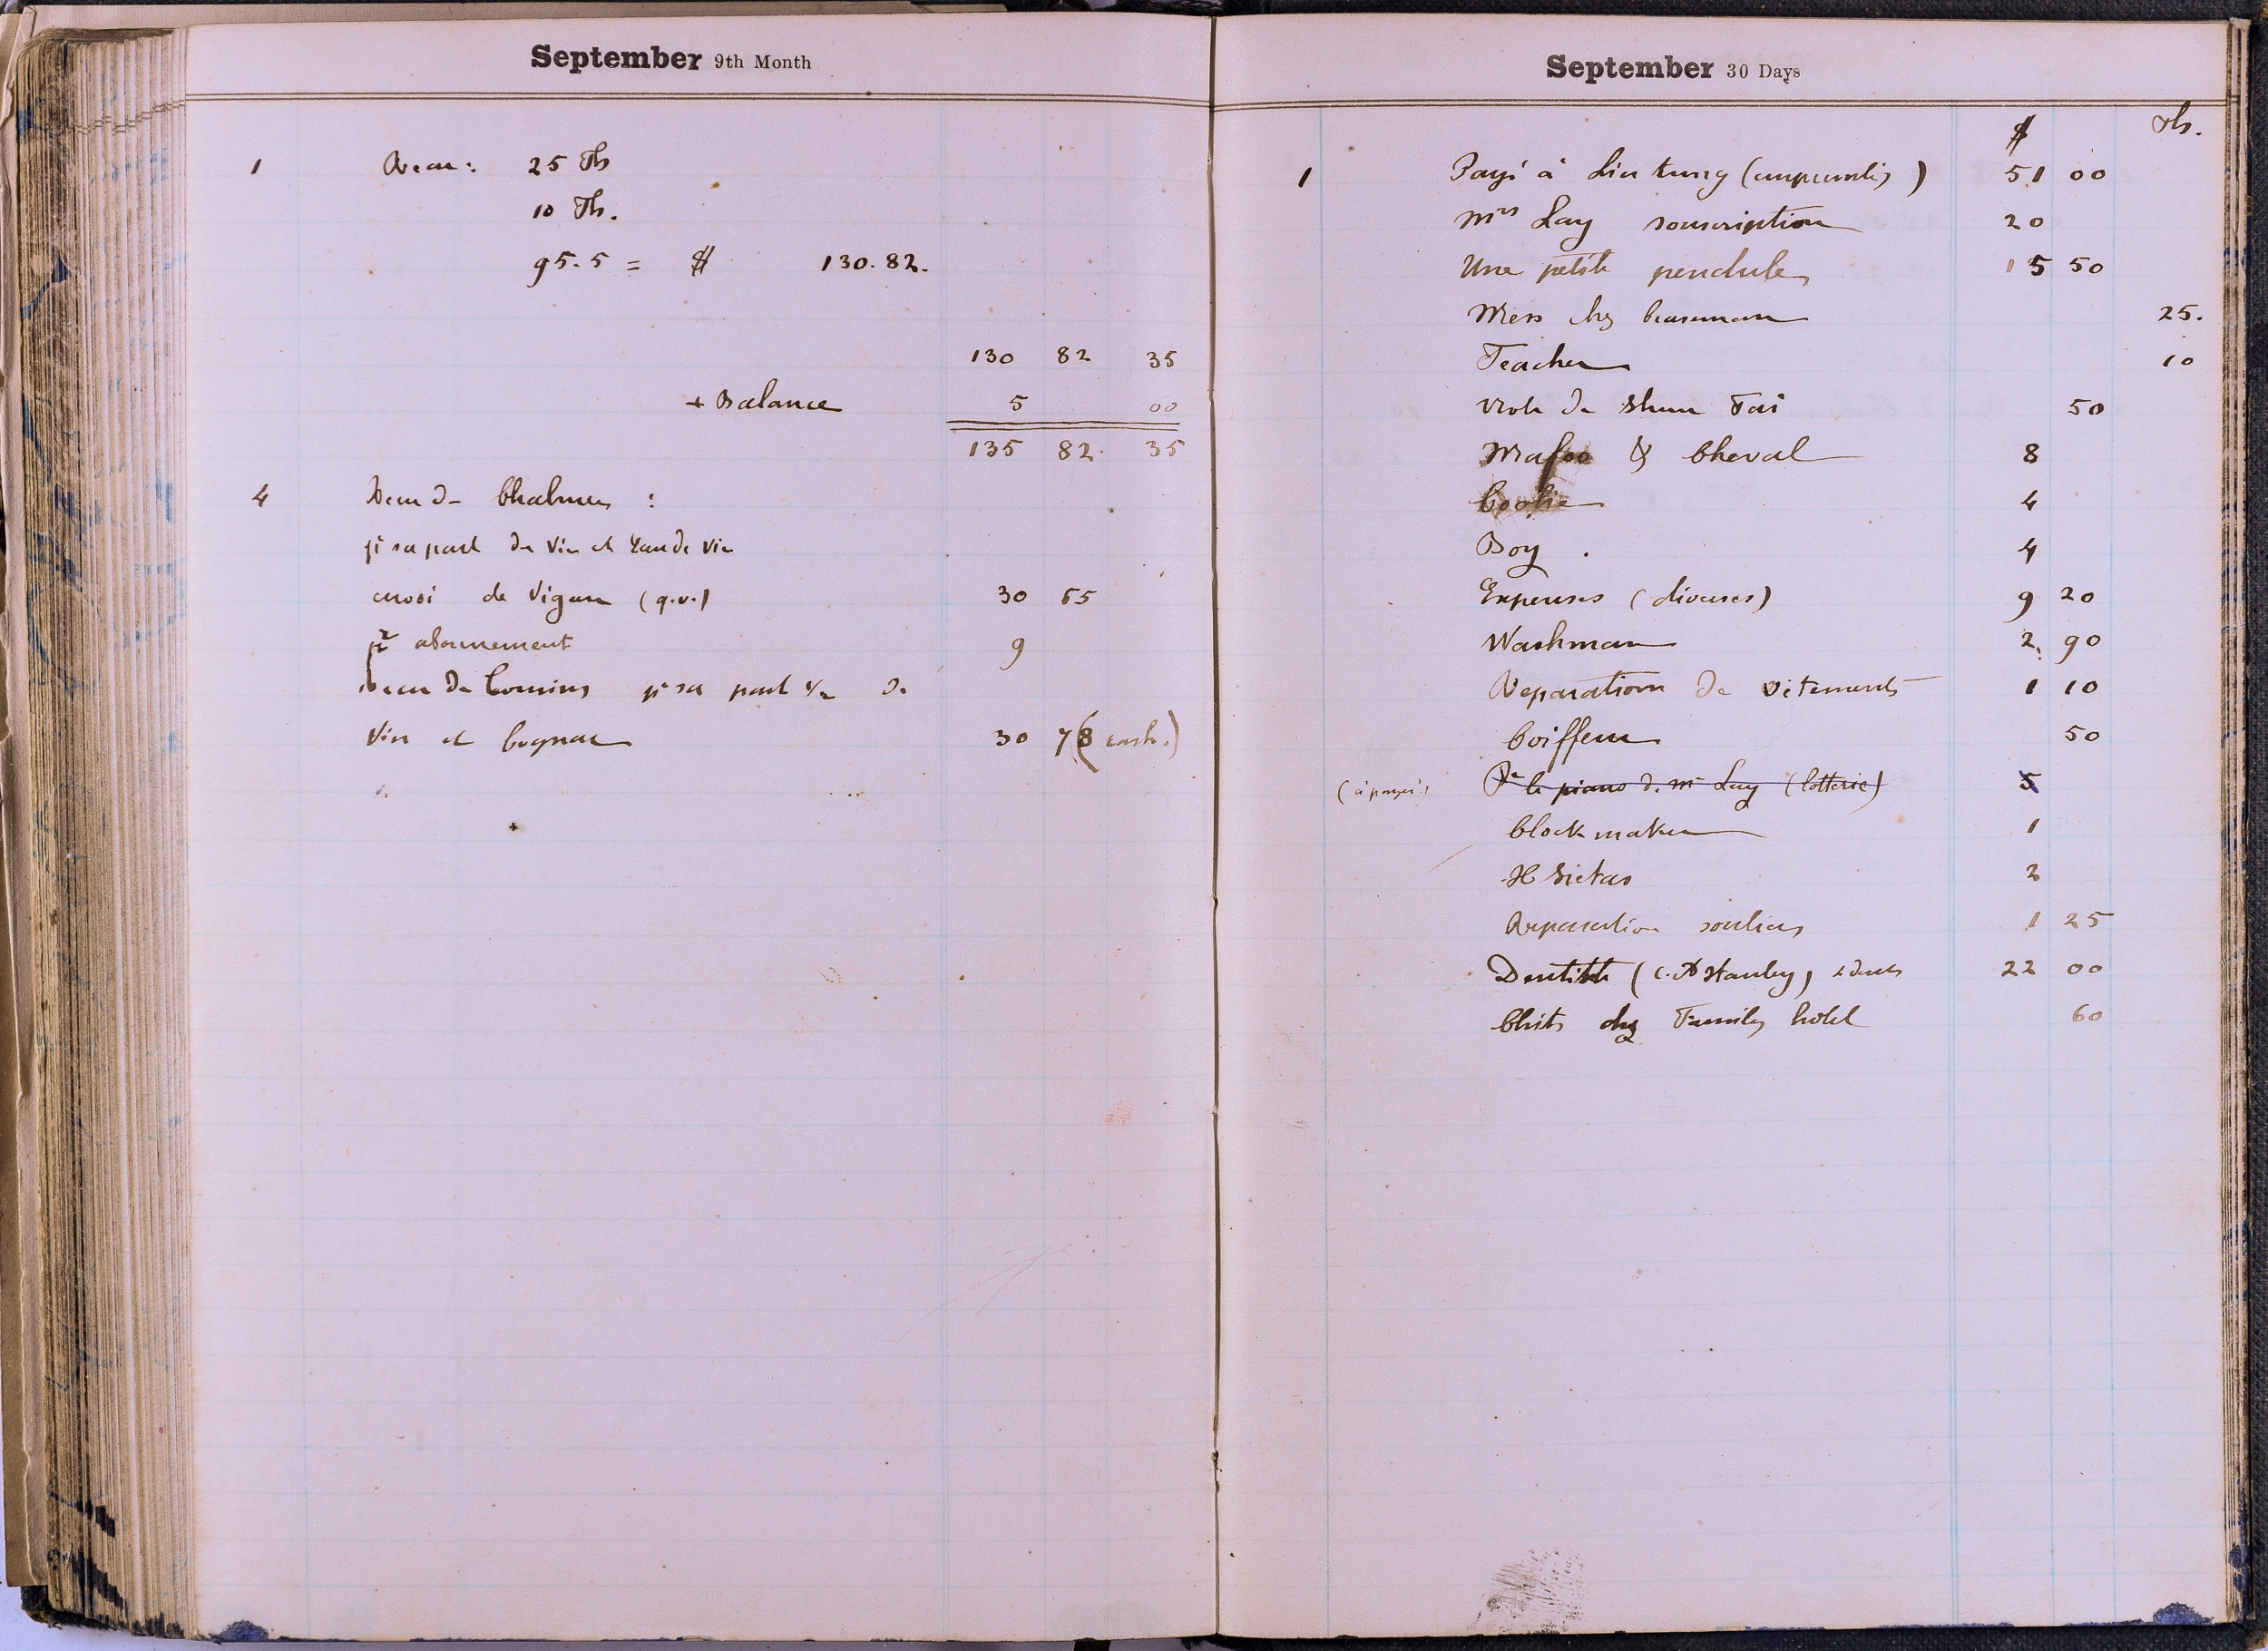 September 9th Month
1 Recu: 25 Th
10 Th.
95.5 = $ 130.82.
130 82 35
+ Balance 5 00
135 82. 35
4 Recu de Chalmers :
pr sa part de Vin et Eau de Vie
envoi de Vigano (q.v.) 30 65
pr abonnement 9
Recu de Comins pr sa part 1/2 de
Vin et Cognac 30 78 (cash.)
September 30 Days
$ Th.
1 Payé à Lin tung (empruntés) 51 00
Mrs Lay souscription 20
Une petite pendule 15 50
Mess chez 25.
Teacher 10
de Shun Tai 50
Mafoo & Cheval 8
Coolie 4
Boy . 4
Expenses (diverses) 9 20
Washman 2. 90
Reparation de vetements 1 10
Coiffeur 50
(à payer) Pr le piano de Mr Lay (lotterie) 5
Clock maker 1
H Sietas 2
Reparation souliers 1 25
Dentiste (C. A Stanley) 22 00
Chits chez Family hotel 60